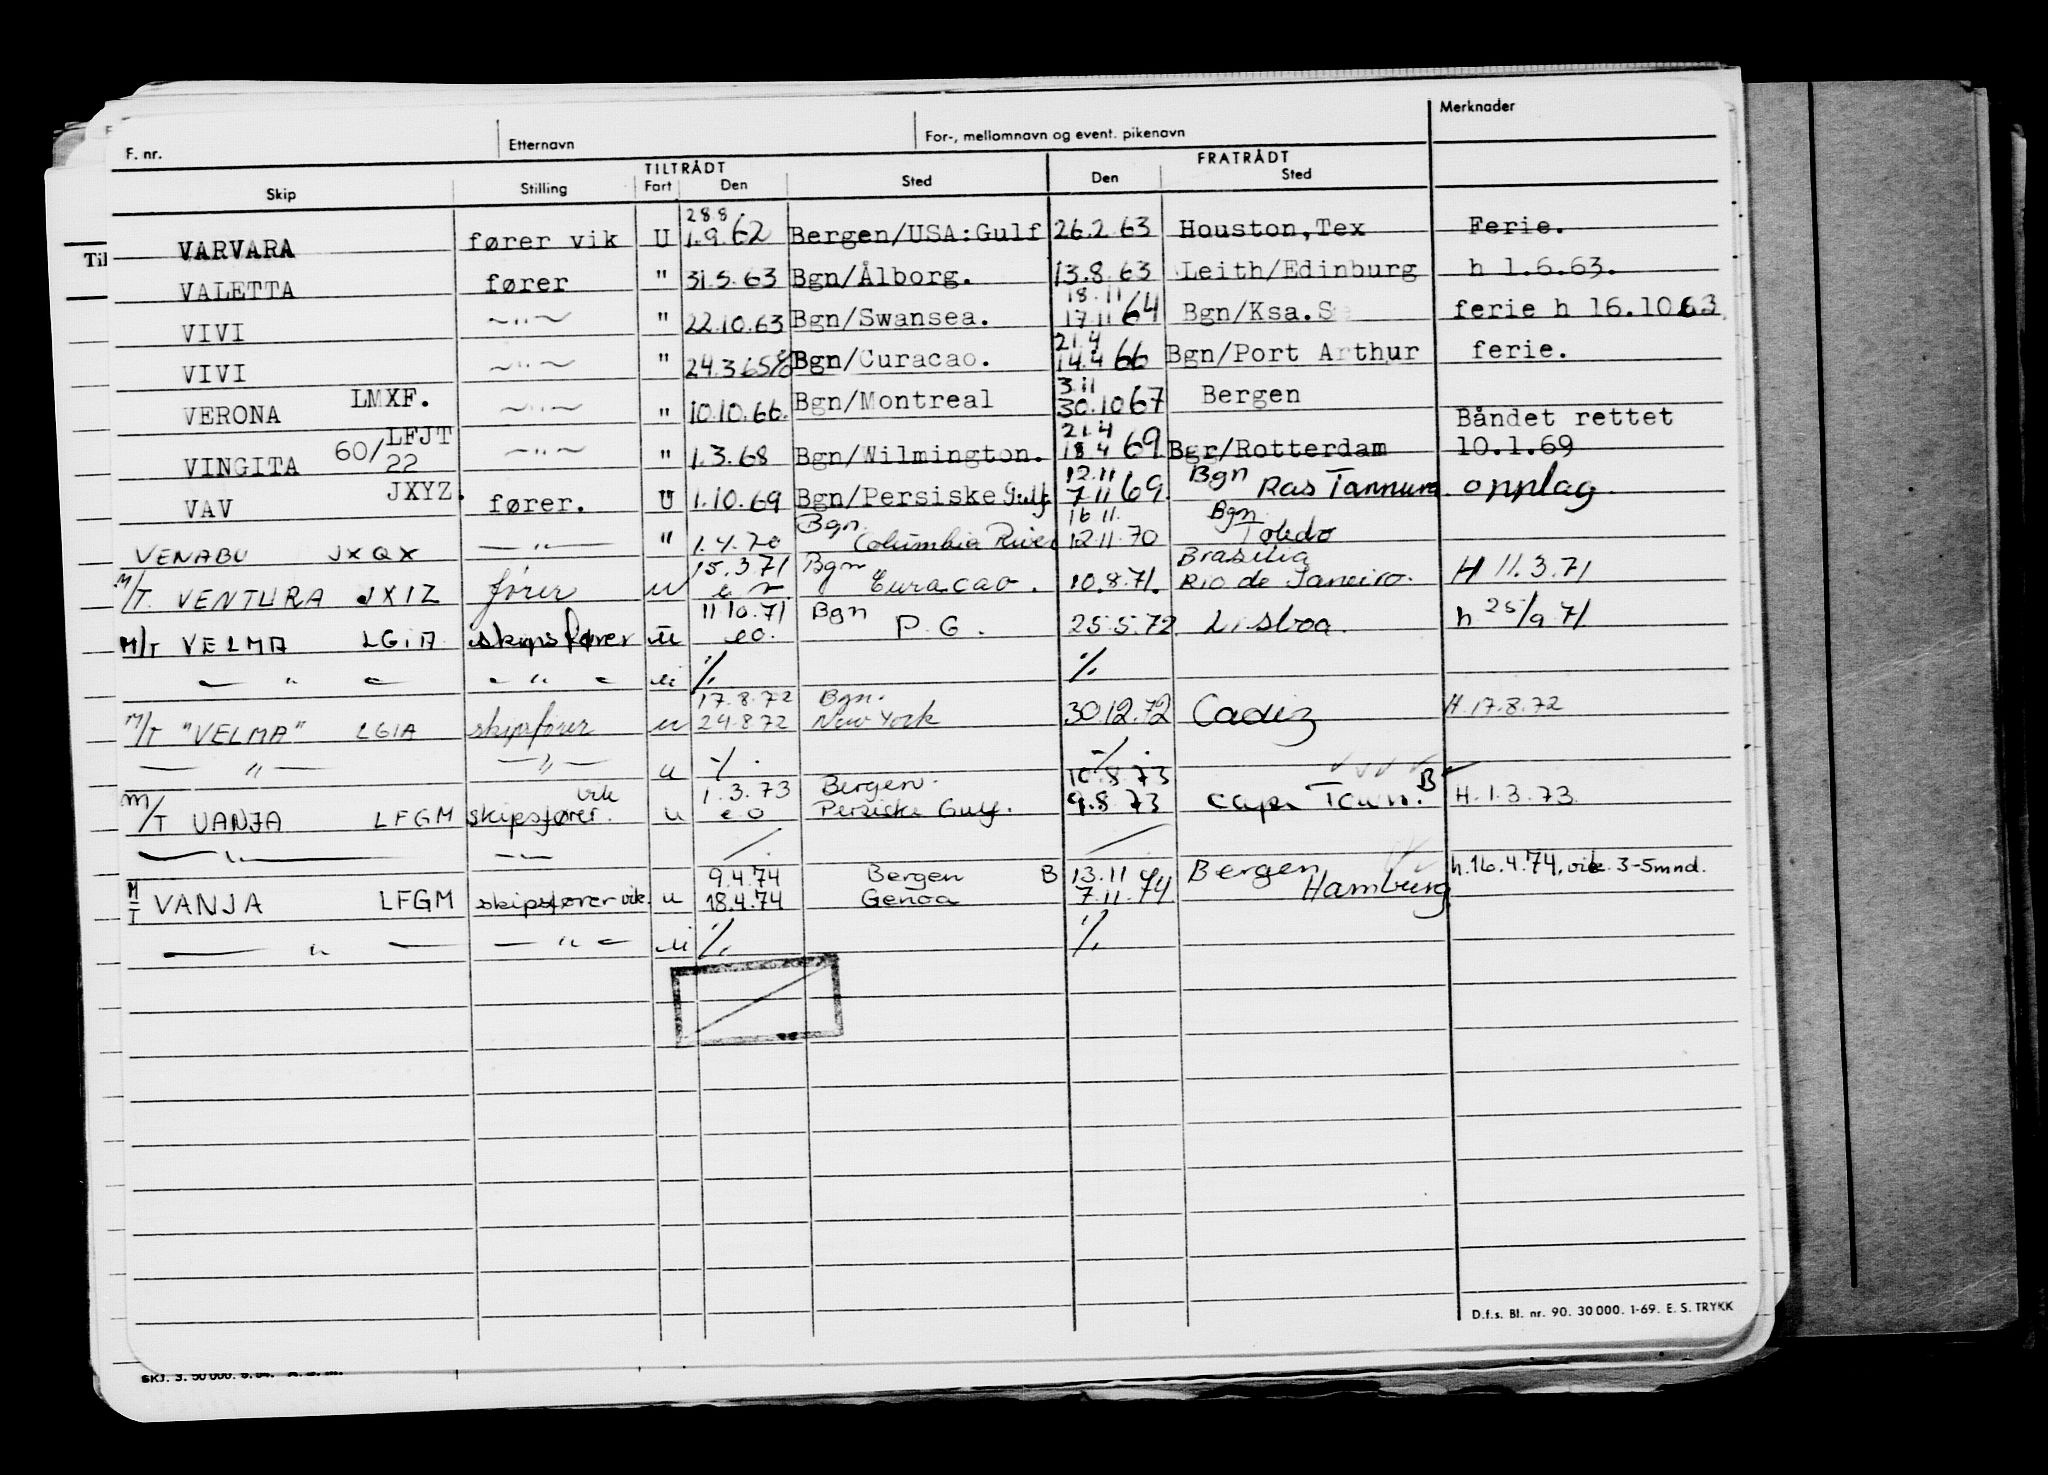 F. nr. Etternavn For-, mellomnavn og event. pikenavn Merknader
TILTRÅDT FRATRÅDT
Skip Stilling Fart Den Sted Den Sted
28.8
VARVARA fører vik U 1.9.62 Bergen/USA:Gulf 26.2.63 Houston,Tex Ferie.
Til
VALETTA fører " 31.5.63 Bgn/Ålborg. 13.8.63 Leith/Edinburg h 1.6.63.
18.11
VIVI —"— " 22.10.63 Bgn/Swansea. 17.11 64 Bgn/Ksa. ferie h 16.10.63
21.4
VIVI —"— " 24.3.65 Bgn/Curacao. 14.4 66 Bgn/Port Arthur ferie.
3.11
VERONA LMXF. —"— " 10.10.66. Bgn/Montreal 30.10 67 Bergen
LFJT 21.4 Båndet rettet
VINGITA 60/22 —"— " 1.3.68 Bgn/Wilmington. 18.4 69 Bgr/Rotterdam 10.1.69
12.11 Bgn
VAV JXYZ. fører. U 1.10.69 Bgn/Persiske Gulf 7.11 69. Ras Tannura. opplag.
Bgn. 16.11. Bgn.
VENABU JXQX —"— " 1.4.70 Columbia River 12.11.70 Toledo
15.3.71 Bgn Brasilia
M/T. VENTURA JXIZ fører u Curacao. 10.8.71. Rio de Janeiro. H 11.3.71
11.10.71 Bgn
M/T VELMA LGIA skipsfører u eo. P.G. 25.5.72 Lisboa. h 25/9.71
— " — — " — u ·/. ·/.
17.8.72 Bgn.
M/T "VELMA" LGIA skipsfører u 24.8.72 New York 30.12.72 Cadiz H.17.8.72
— " — — " — u ·/. ·/.
vik 1.3.73 Bergen. 10.8.73 B
M/T VANJA LFGM skipsfører. u eo Persiske Gulf. 9.8.73 Cape Town. H.1.3.73
— " — — " — / /
9.4.74 Bergen B 13.11.74 Bergen h.16.4.74, vik. 3-5mnd.
M/T VANJA LFGM skipsfører vik. u 18.4.74 Genoa 7.11.74 Hamburg
— " — — " — u ·/. ·/.
D.f.s. Bl. nr. 90. 30 000. 1-69. E. S. TRYKK